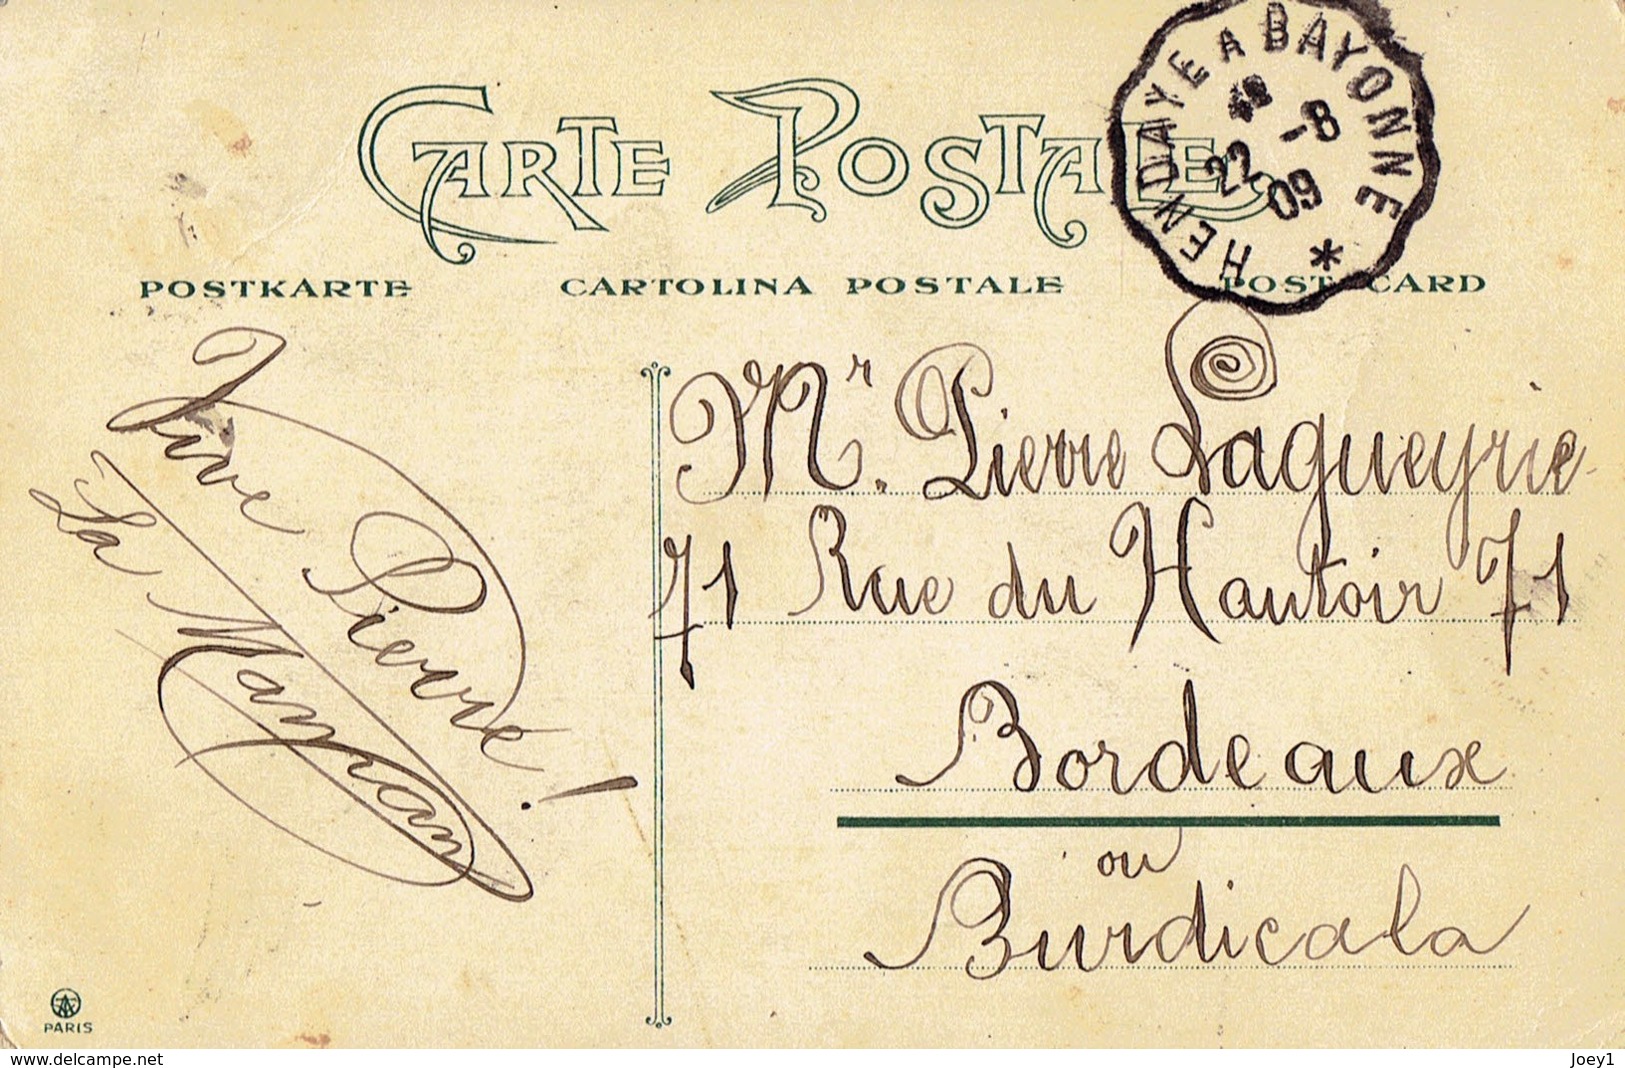 CARTE POSTALE
HENDAYE A BAYONNE *
22 -8
09
POSTKARTE CARTOLINA POSTALE POST CARD
Vive Pierre !
La Maman
Mr. Pierre Lagueyrie
71 Rue du Hautoir 71
Bordeaux
ou
Burdicala
PARIS
www.delcampe.net
Joey1